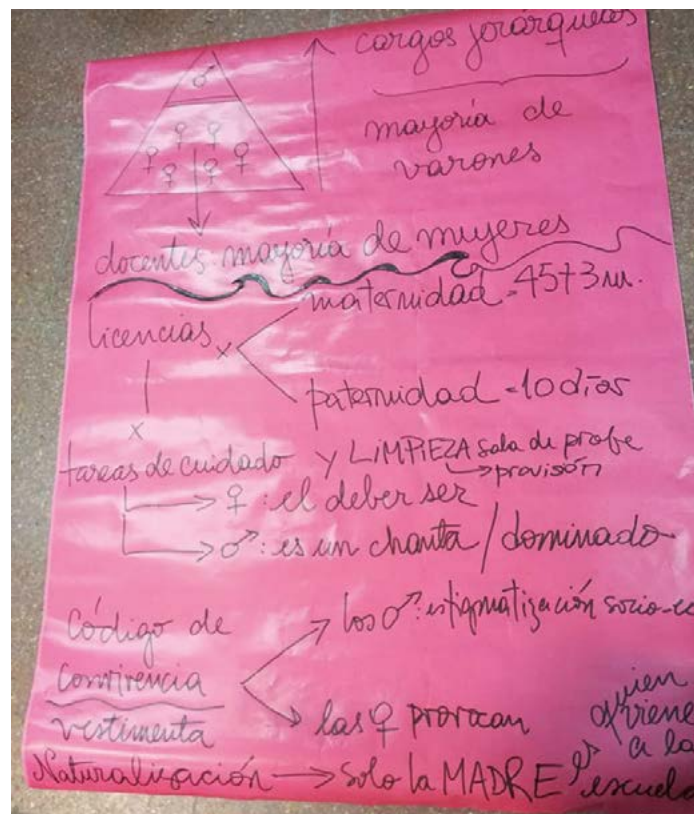 cargos jerárquicos
mayoría de
varones
♂
♀ ♀
♀ ♀ ♀ ♀
docentes mayoría de mujeres
licencias x
maternidad = 45+3 m.
paternidad = 10 días
x
tareas de cuidado y LIMPIEZA sala de profe
→ provisión
→ ♀: el deber ser
→ ♂: es un chanta / dominado
Código de
convivencia
vestimenta
→ los ♂: estigmatización socio-ec
→ las ♀ provocan
Naturalización → Solo la MADRE es
quien
viene
a la
escuela